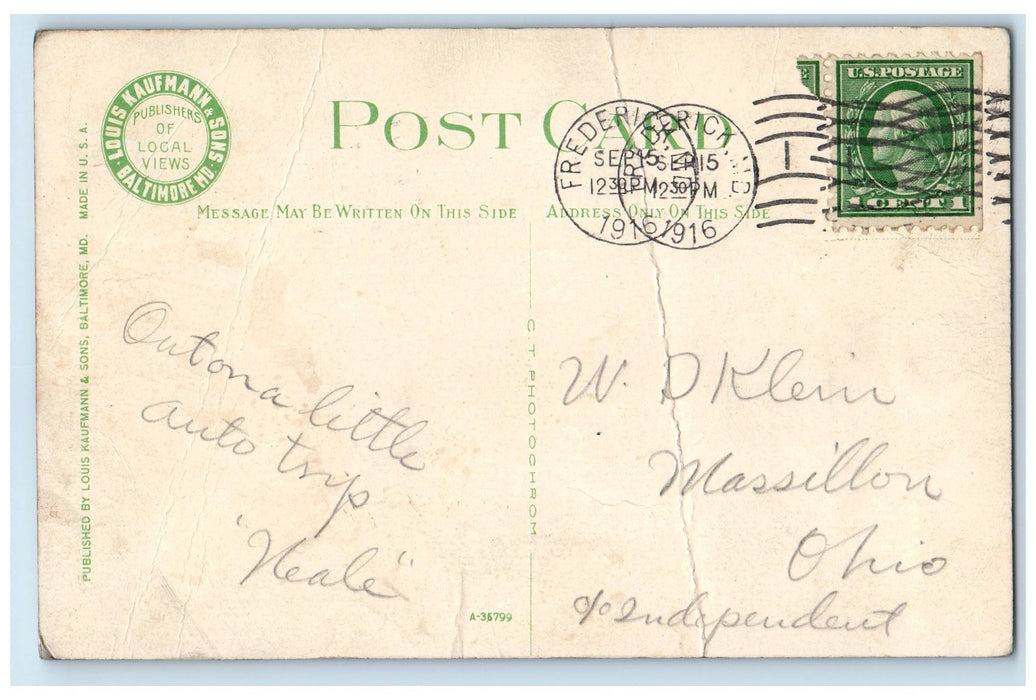 LOUIS KAUFMANN & SONS
BALTIMORE MD.
PUBLISHERS
OF
LOCAL
VIEWS
POST CARD
FREDERICK, MD.
SEP 15
12 30 PM
1916
FREDERICK, MD.
SEP 15
12 30 PM
1916
U.S. POSTAGE
1 CENT 1
MESSAGE MAY BE WRITTEN ON THIS SIDE
ADDRESS ONLY ON THIS SIDE
PUBLISHED BY LOUIS KAUFMANN & SONS, BALTIMORE, MD. MADE IN U. S. A.
Out on a little
auto trip
"Neale"
C. T. PHOTOCHROM
W. D Klein
Massillon
Ohio
c/o Independent
A-36799